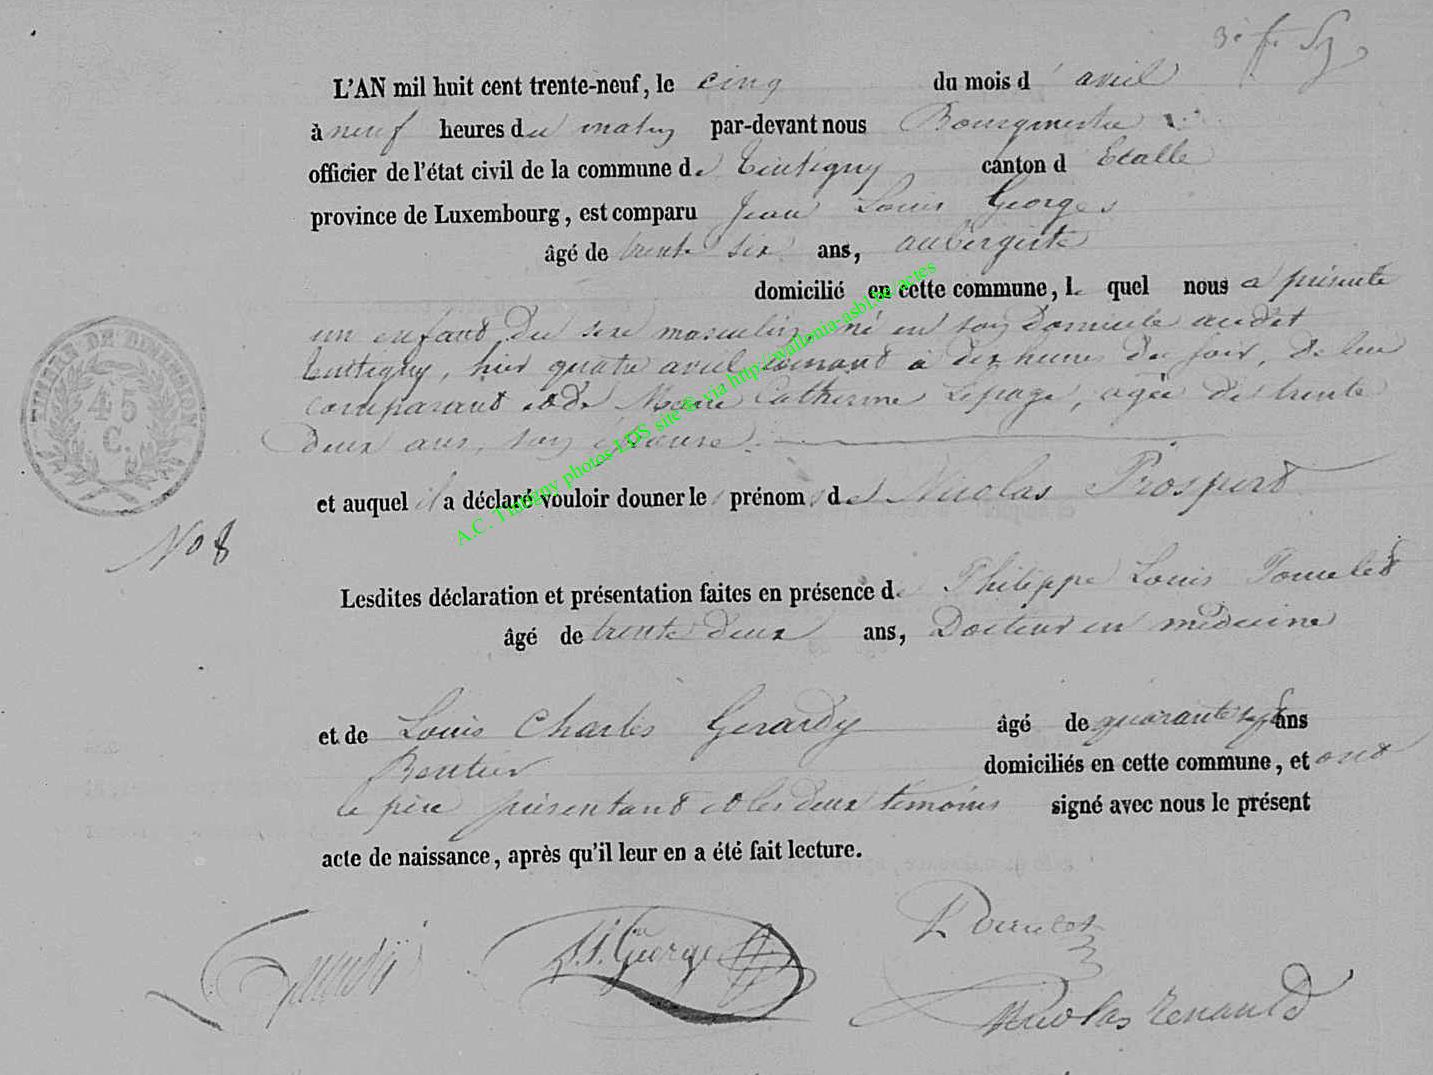 3e f. Sy
L'AN mil huit cent trente-neuf, le cinq du mois d'avril
à neuf heures du matin par-devant nous Bourgmestre
officier de l'état civil de la commune de Tintigny canton d Etalle
province de Luxembourg, est comparu Jean Louis Georges
âgé de trente six ans, aubergiste
domicilié en cette commune, le quel nous a présenté
un enfant du sexe masculin né en son domicile audit
Tintigny, hier quatre avril courant à dix heures du soir, de lui
comparant et de Marie Catherine Lepage, agée de trente
deux ans, son épouse.
et auquel il a déclaré vouloir donner les prénoms de Nicolas Prospert
No 8
Lesdites déclaration et présentation faites en présence de Philippe Louis Pomelet
âgé de trente deux ans, Docteur en médecine
et de Louis Charles Gerardy âgé de quarante sept ans
Rentier domiciliés en cette commune, et ont
le père présentant et les deux témoins signé avec nous le présent
acte de naissance, après qu'il leur en a été fait lecture.
TIMBRE DE DIMENSION
45
C.
A.C. Tintigny photos LDS site @ via http://wallonia-asbl.be actes
J. L. George
Nicolas Renauld